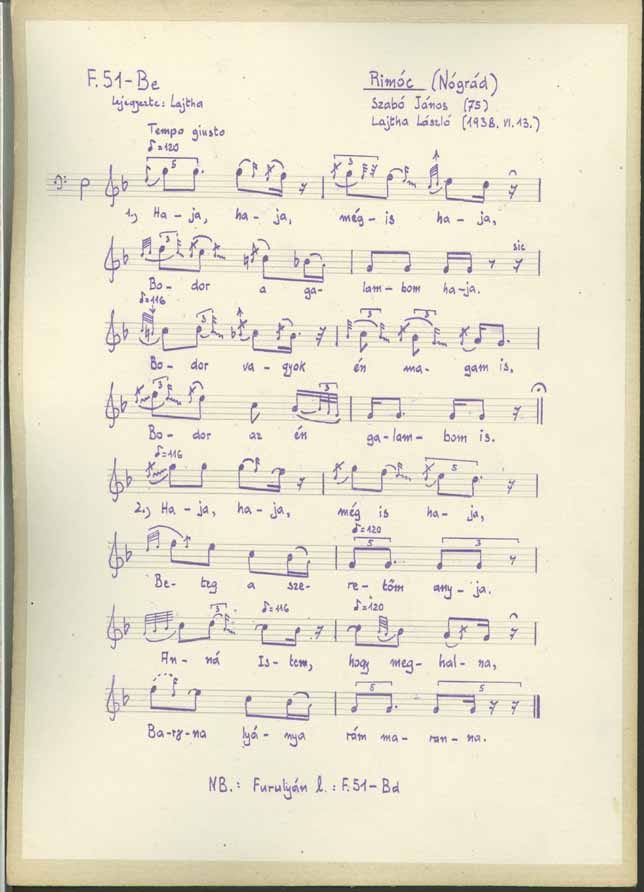 F.51-Be
Rimóc (Nógrád)
lejegyezte: Lajtha
Szabó János (75)
Lajtha László (1938. VI. 13.)
Tempo giusto
♪=120
5
3
1., Ha-ja, ha-ja, még-is ha-ja,
3 3
sic
Bo-dor a ga-lam-bom ha-ja.
♪=116
3 3 3
Bo-dor va-gyok én ma-gam is,
3 3
Bo-dor az én ga-lam-bom is.
♪=116
5
2., Ha-ja, ha-ja, még is ha-ja,
♪=120
5 3
Be-teg a sze-re-tőm any-ja.
3 ♪=116 ♪=120
An-ná Is-tem, hogy meg-hal-na,
5 5
Ba-rz-na lyá-nya rám ma-ran-na.
NB.: Furulyán l.: F.51-Bd